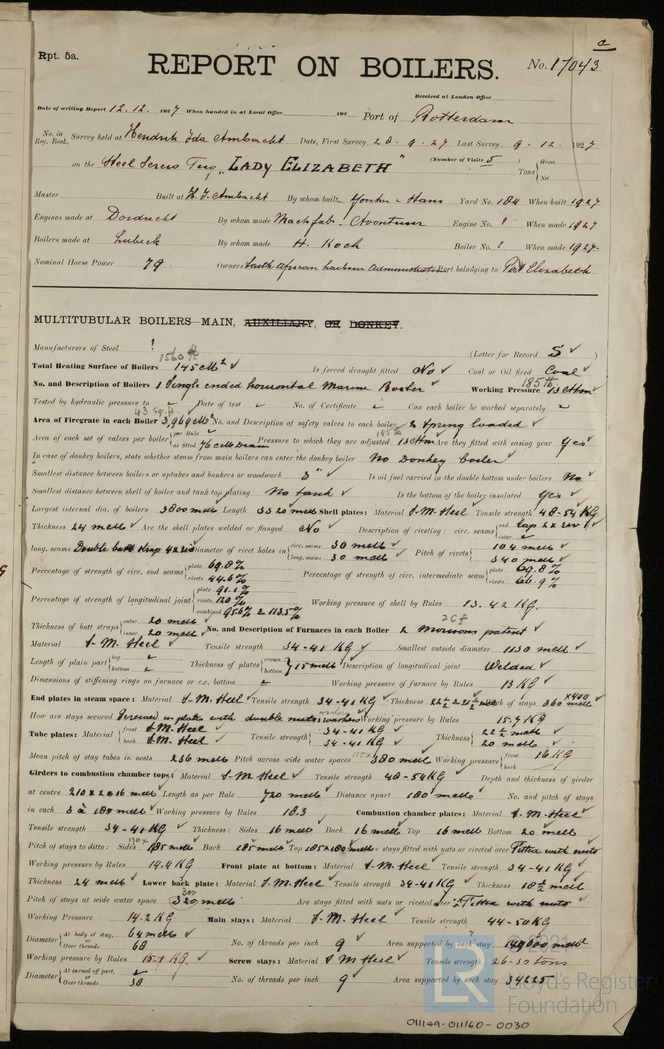 c
Rpt. 5a.
REPORT ON BOILERS.
No. 17043
Received at London Office
Date of writing Report 12.12. 1927 When handed in at Local Office 192 Port of Rotterdam
No. in Reg. Book. Survey held at Hendrik Ido Ambacht Date, First Survey 26-9-27 Last Survey 9-12-1927
on the Steel Screw Tug "LADY ELIZABETH" (Number of Visits 5) Tons Gross Net
Master Built at H.I. Ambacht By whom built Jonker & Stans Yard No. 184 When built 1927
Engines made at Dordrecht By whom made Machfab. Avontuur Engine No. ! When made 1927
Boilers made at Lubeck By whom made H. Koch Boiler No. ! When made 1927
Nominal Horse Power 79 Owners South African harbour Administration Port belonging to Port Elizabeth
MULTITUBULAR BOILERS—MAIN, AUXILIARY, OR DONKEY.
Manufacturers of Steel ! (Letter for Record S)
1560
Total Heating Surface of Boilers 145 M² Is forced draught fitted No Coal or Oil fired Coal
No. and Description of Boilers 1 Single ended horizontal Marine Boiler Working Pressure 185 lb 13 Atm
Tested by hydraulic pressure to Date of test No. of Certificate Can each boiler be worked separately
Area of Firegrate in each Boiler No. and Description of safety valves to each boiler 2 Spring loaded
Area of each set of valves per boiler per Rule as fitted Pressure to which they are adjusted 13 Atm Are they fitted with easing gear Yes
In case of donkey boilers, state whether steam from main boilers can enter the donkey boiler No Donkey boiler
Smallest distance between boilers or uptakes and bunkers or woodwork Is oil fuel carried in the double bottom under boilers No
Smallest distance between shell of boiler and tank top plating No tank Is the bottom of the boiler insulated Yes
Largest internal dia. of boilers 3800 Length 3320 Shell plates: Material S.M. Steel Tensile strength 48-54 KG
Thickness 24 Are the shell plates welded or flanged No Description of riveting: circ. seams end lap 2 x riv inter.
long. seams Double butt strap Diameter of rivet holes in circ. seams 30 long. seams 30 Pitch of rivets 104 340
Percentage of strength of circ. end seams plate 69.8% rivets 44.6% Percentage of strength of circ. intermediate seam plate 69.8% rivets 60.9%
Percentage of strength of longitudinal joint plate 91.1% rivets 120% combined 95.6% & 113.5% Working pressure of shell by Rules 13.42 KG.
Thickness of butt straps outer 20 inner 20 No. and Description of Furnaces in each Boiler 2 Morisons patent
Material S-M. Steel Tensile strength 34-41 KG Smallest outside diameter 1130
Length of plain part top bottom Thickness of plates crown bottom 15 Description of longitudinal joint Welded
Dimensions of stiffening rings on furnace or c.c. bottom Working pressure of furnace by Rules 13 KG
End plates in steam space: Material S-M. Steel Tensile strength 34-41 KG Thickness Pitch of stays 360 x 400
How are stays secured Screwed in plates with double nuts & washers Working pressure by Rules 15.7 KG
Tube plates: Material front S.M. Steel back S.M. Steel Tensile strength 34-41 KG 34-41 KG Thickness 22½ 20
Mean pitch of stay tubes in nests 236 Pitch across wide water spaces 380 Working pressure front 16 KG back
Girders to combustion chamber tops: Material S-M. Steel Tensile strength 48-54 KG Depth and thickness of girder
at centre 210 x 2 @ 16 Length as per Rule 720 Distance apart 180 No. and pitch of stays
in each 3 à 185 Working pressure by Rules 18.3 Combustion chamber plates: Material S-M. Steel
Tensile strength 34-41 KG Thickness: Sides 16 Back 16 Top 16 Bottom 20
Pitch of stays to ditto: Sides Back Top Are stays fitted with nuts or riveted over Fitted with nuts
Working pressure by Rules 14.4 KG Front plate at bottom: Material S-M. Steel Tensile strength 34-41 KG
Thickness 24 Lower back plate: Material S.M. Steel Tensile strength 34-41 KG Thickness 18½
Pitch of stays at wide water space Are stays fitted with nuts or riveted over Fitted with nuts
Working Pressure 14.2 KG Main stays: Material S.M. Steel Tensile strength 44-50 KG
Diameter At body of stay, or Over threads 64 68 No. of threads per inch 9 Area supported by each stay
Working pressure by Rules 15.1 KG. Screw stays: Material S M Steel Tensile strength 26-30 tons
Diameter At turned off part, or Over threads 38 No. of threads per inch 9 Area supported by each stay 34225
© 2021
LR
Lloyd's Register
Foundation
011149-011160-0030